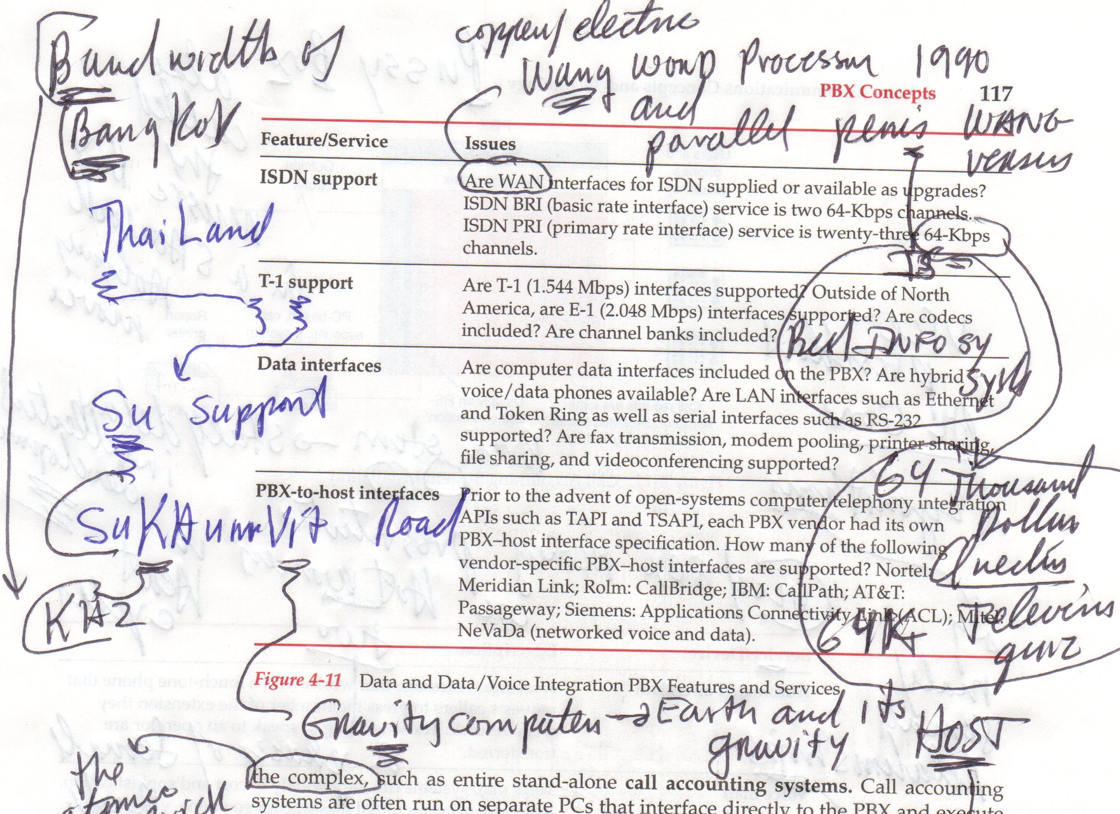 Bandwidth of
copper/electric
Wang word Processor 1990
PBX Concepts 117
and
parallel penis WANG
versus
BangKoK
Feature/Service Issues
ISDN support Are WAN interfaces for ISDN supplied or available as upgrades?
ISDN BRI (basic rate interface) service is two 64-Kbps channels.
ISDN PRI (primary rate interface) service is twenty-three 64-Kbps
channels.
ThaiLand
T-1 support Are T-1 (1.544 Mbps) interfaces supported? Outside of North
America, are E-1 (2.048 Mbps) interfaces supported? Are codecs
included? Are channel banks included?
Data interfaces Are computer data interfaces included on the PBX? Are hybrid
voice/data phones available? Are LAN interfaces such as Ethernet
and Token Ring as well as serial interfaces such as RS-232
supported? Are fax transmission, modem pooling, printer sharing,
file sharing, and videoconferencing supported?
Su support
64 Thousand
Dollar
64K
PBX-to-host interfaces Prior to the advent of open-systems computer telephony integration
APIs such as TAPI and TSAPI, each PBX vendor had its own
PBX–host interface specification. How many of the following
vendor-specific PBX–host interfaces are supported? Nortel:
Meridian Link; Rolm: CallBridge; IBM: CallPath; AT&T:
Passageway; Siemens: Applications Connectivity Link (ACL); Mitel:
NeVaDa (networked voice and data).
SuKHumVit Road
KHZ
Figure 4-11 Data and Data/Voice Integration PBX Features and Services
Gravity computer → Earth and its
gravity HOST
the complex, such as entire stand-alone call accounting systems. Call accounting
the
systems are often run on separate PCs that interface directly to the PBX and execute